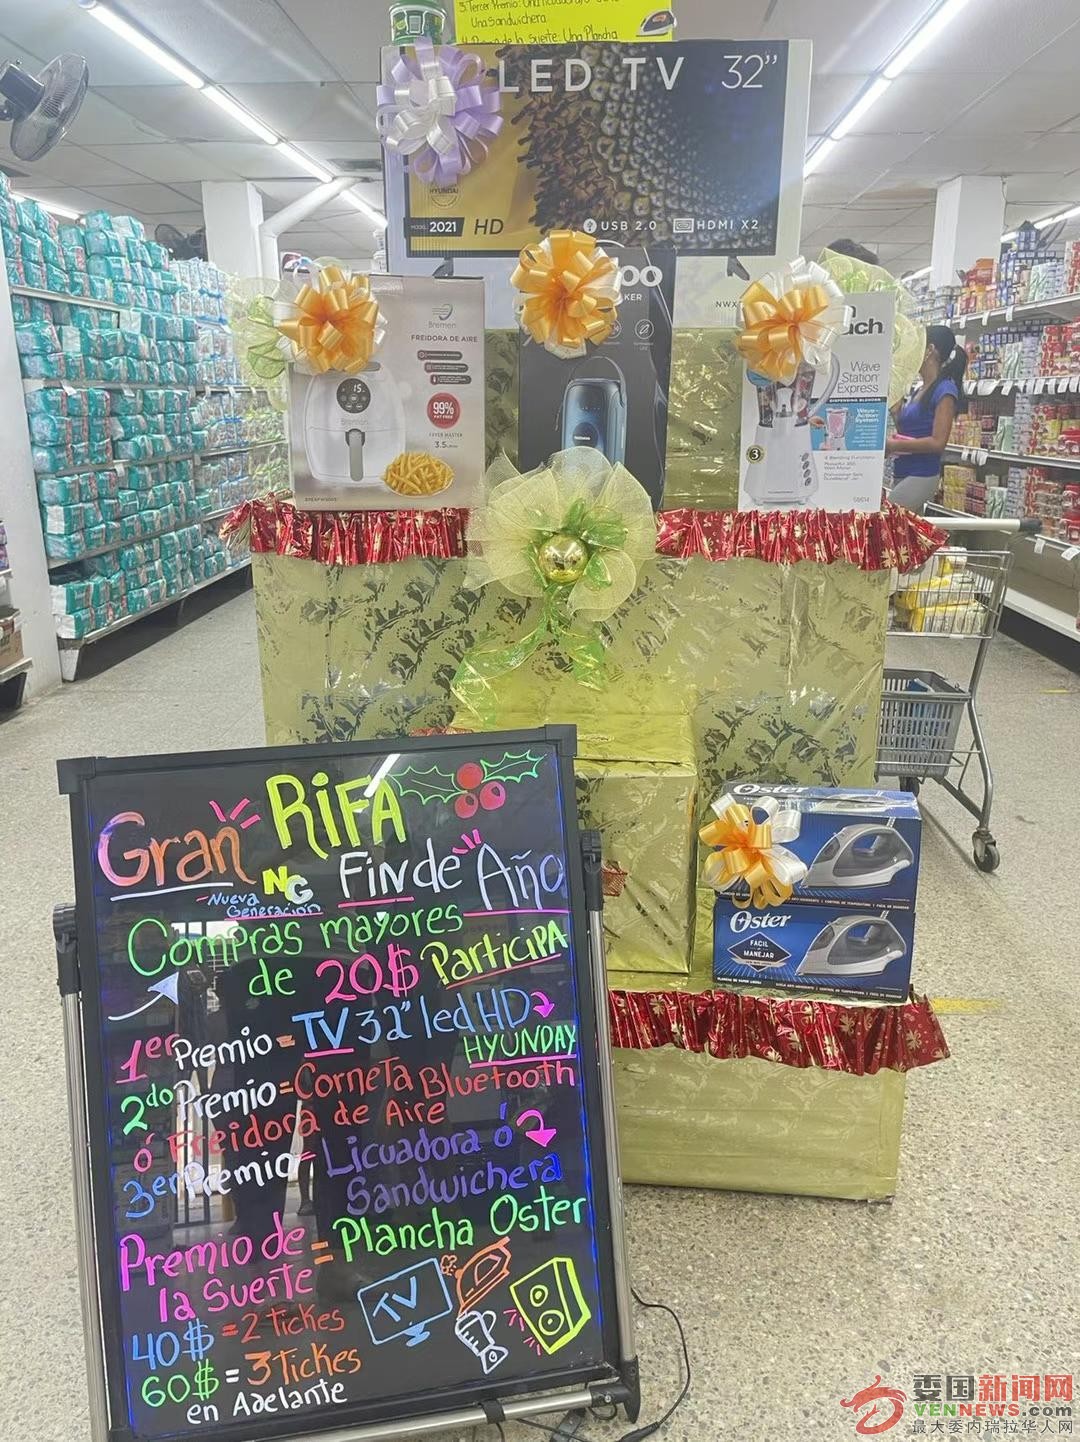 3. Tercer Premio: Una
Una Sandwichera
Suerte: Una Plancha
LED TV 32"
HYUNDAI
MODEL 2021 HD
USB 2.0 HDMI X2
Bremen
FREIDORA DE AIRE
15
99%
FAT FREE
Bremen
FRYER MASTER
3.5
po
KER
NWX
ach
Wave
Station
Express
DISPENSING BLENDER
Wave-
Action
3
4 Blending Functions
58614
Gran RIFA
NG FIN de Año
Nueva
Generación
Compras mayores
de 20$ Participa
1er Premio = TV 32" led HD
HYUNDAY
2do Premio = Corneta Bluetooth
ó Freidora de Aire
3er Premio = Licuadora ó
Sandwichera
Premio de
la Suerte = Plancha Oster
TV
40$ = 2 tickes
60$ = 3 tickes
en Adelante
Oster
Oster
FACIL
de
MANEJAR
委国新闻网
VENNEWS.com
最大委内瑞拉华人网